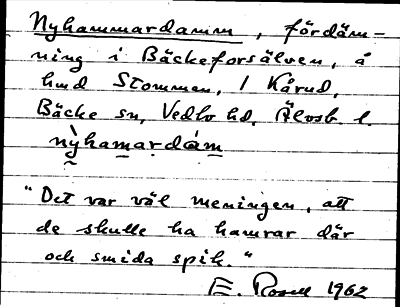 Nyhammardamm, fördäm-
ning i Bäckeforsälven, å
hmd Stommen, 1 Kårud,
Bäcke sn, Vedbo hd, Älvsb. l.
nỳhamardám
"Det var väl meningen, att
de skulle ha hamrar där
och smida spik."
E. Rosell 1962